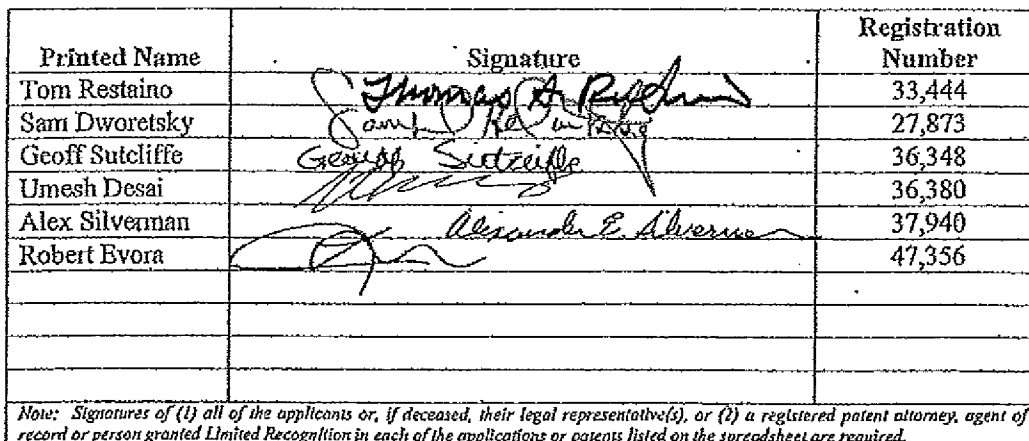 Printed Name Signature Registration Number
Tom Restaino Thomas A. 33,444
Sam Dworetsky 27,873
Geoff Sutcliffe Geoffrey Sutcliffe 36,348
Umesh Desai 36,380
Alex Silverman Alexander E. Silverman 37,940
Robert Evora 47,356
Note: Signatures of (1) all of the applicants or, if deceased, their legal representative(s), or (2) a registered patent attorney, agent of
record or person granted Limited Recognition in each of the applications or patents listed on the spreadsheet are required.